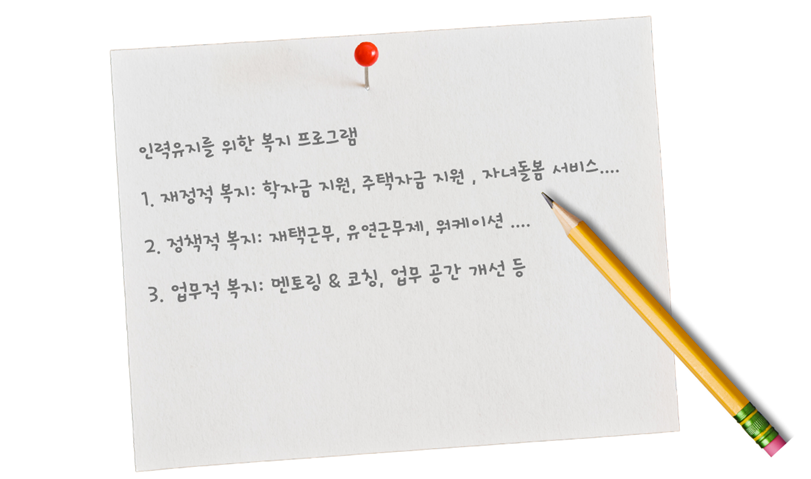 인력유지를 위한 복지 프로그램
1. 재정적 복지: 학자금 지원, 주택자금 지원 , 자녀돌봄 서비스....
2. 정책적 복지: 재택근무, 유연근무제, 워케이션 ....
3. 업무적 복지: 멘토링 & 코칭, 업무 공간 개선 등